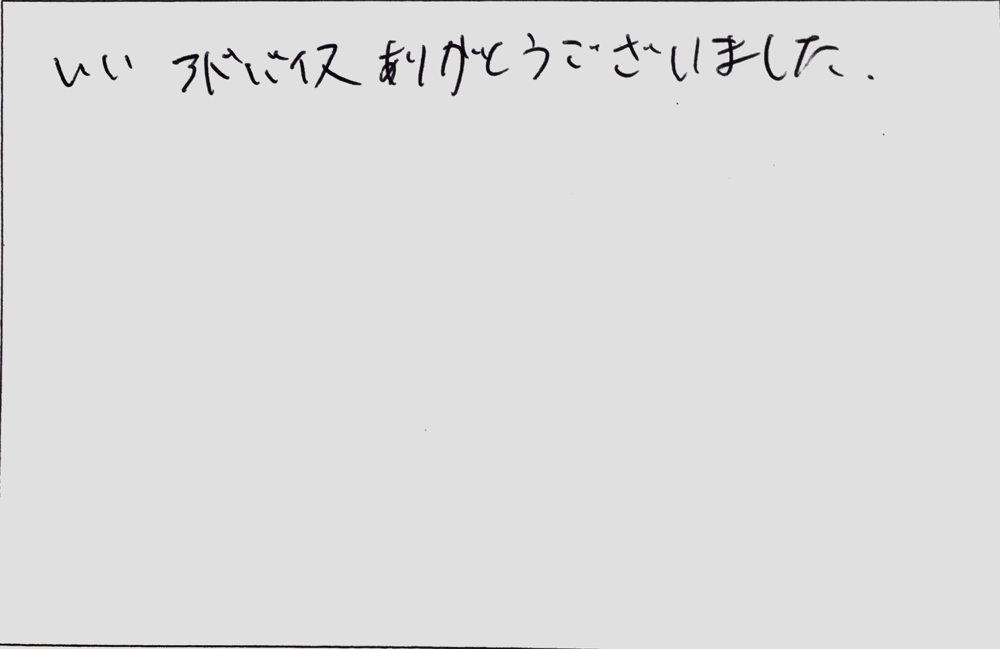 いい アドバイス ありがとうございました.